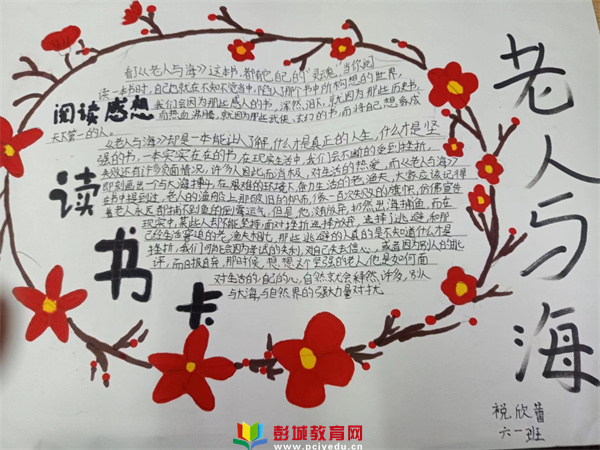 老人与海
阅读感想
读书卡
《老人与海》这本书,都有它自己的
读一本书时,自己也就在不知不觉中,陷入那个书中所构想的世界,
我们会因为那些感人的书,潸然泪下,就因为那些历史书,
而热血沸腾,就因为那些武侠、玄幻的书,而将自己想象成
天下第一的人。
《老人与海》却是一本能让人了解,什么才是真正的人生,什么才是坚
强的书,一本实实在在的书,在现实生活中,我们会不断的受到挫折,
失败还有许多负面情况,许多人因此而消极,对生活的热爱,而《老人与海》
即刻画出一个与大海搏斗,在艰难的环境下,奋力生活的老渔夫,大家应该记得
在书中提到过,老人的渔船上那破旧的帆布,像一直次失败的旗帜,仿佛宣告
着老人永远都捕不到鱼的倒霉运气,但是,他没放弃,扔然出海捕鱼,而在
现实中,某些人却不能坚持,面对挫折选择放弃,选择逃避,和那
挫折,幼儿们可能会因为考试的失利,对自己失去信心,或者因为别人的批
评,而自报自弃,那时候,想想这个坚强的老人,他是如何面
对生活的,自己的心,自然就会释然,许多,别人
与大海,与自然界的强大力量对扩大
祝欣蕾
六一班
彭城教育网
www.pcjyedu.cn